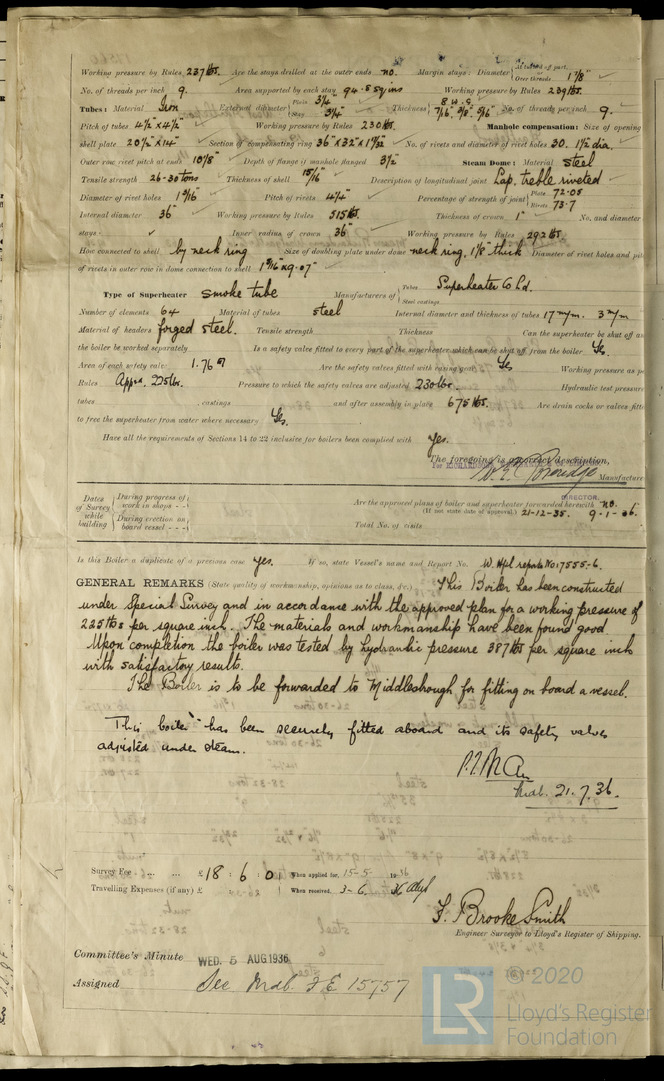 Working pressure by Rules 237 lbs. Are the stays drilled at the outer ends no. Margin stays: Diameter { At turned off part, Over threads 1 7/8"
No. of threads per inch 9. Area supported by each stay 94.5 sq ins Working pressure by Rules 239 lbs.
Tubes: Material Iron External diameter { Plain 3 1/4" Stay 3 1/4" Thickness { 8 W.G. 7/16", 3/8", 5/16" No. of threads per inch 9.
Pitch of tubes 4 1/2" x 4 1/2" Working pressure by Rules 230 lbs. Manhole compensation: Size of opening
shell plate 20 1/2" x 14" Section of compensating ring 36" x 32" x 1 19/32" No. of rivets and diameter of rivet holes 30. 1 1/2 dia.
Outer row rivet pitch at ends 10 1/8" Depth of flange if manhole flanged 3 1/2" Steam Dome: Material steel
Tensile strength 26-30 tons Thickness of shell 15/16" Description of longitudinal joint Lap, treble riveted
Diameter of rivet holes 1 3/16" Pitch of rivets 4 1/4" Percentage of strength of joint { Plate 72.05 Rivets 73.7
Internal diameter 36" Working pressure by Rules 515 lbs. Thickness of crown 1" No. and diameter
stays - Inner radius of crown 36" Working pressure by Rules 292 lbs.
How connected to shell by neck ring Size of doubling plate under dome neck ring, 1 1/8" thick Diameter of rivet holes and
of rivets in outer row in dome connection to shell 1 9/16" x 9.07"
Type of Superheater smoke tube Manufacturers of { Tubes Steel castings Superheater Co Ld.
Number of elements 64 Material of tubes steel Internal diameter and thickness of tubes 17 m/m. 3 m/m
Material of headers forged steel. Tensile strength Thickness Can the superheater be shut off
the boiler be worked separately Is a safety valve fitted to every part of the superheater which can be shut off from the boiler Yes.
Area of each safety valve 1.76 Are the safety valves fitted with easing gear Yes Working pressure as
Rules Appd. 225 lbs. Pressure to which the safety valves are adjusted 230 lbs. Hydraulic test pressure
tubes , castings and after assembly in place 675 lbs. Are drain cocks or valves
to free the superheater from water where necessary Yes.
Have all the requirements of Sections 14 to 22 inclusive for boilers been complied with yes.
The foregoing is a correct description,
For RICHARDSONS
Manufacturer
DIRECTOR.
Dates of Survey while building { During progress of work in shops - - During erection on board vessel - - -
Are the approved plans of boiler and superheater forwarded herewith no.
(If not state date of approval.) 21-12-35. 9-1-36.
Total No. of visits
Is this Boiler a duplicate of a previous case Yes. If so, state Vessel's name and Report No. W. Hpl reports No: 17555-6.
GENERAL REMARKS (State quality of workmanship, opinions as to class, &c.) This Boiler has been constructed
under Special Survey and in accordance with the approved plan for a working pressure of
225 lbs per square inch. The materials and workmanship have been found good
Upon completion the boiler was tested by hydraulic pressure 387 lbs per square inch
with satisfactory results.
The Boiler is to be forwarded to Middlesbrough for fitting on board a vessel.
This boiler has been securely fitted aboard and its safety valves
adjusted under steam.
Mdb. 21.7.36.
Survey Fee ... ... £18 : 6 : 0 When applied for, 15-5- 1936
Travelling Expenses (if any) £ : : When received, 3-6. 36
F. Brooke Smith
Engineer Surveyor to Lloyd's Register of Shipping.
Committee's Minute WED. 5 AUG 1936
Assigned See Mdb. F.E. 15757
© 2020
Lloyd's Register
Foundation
LR